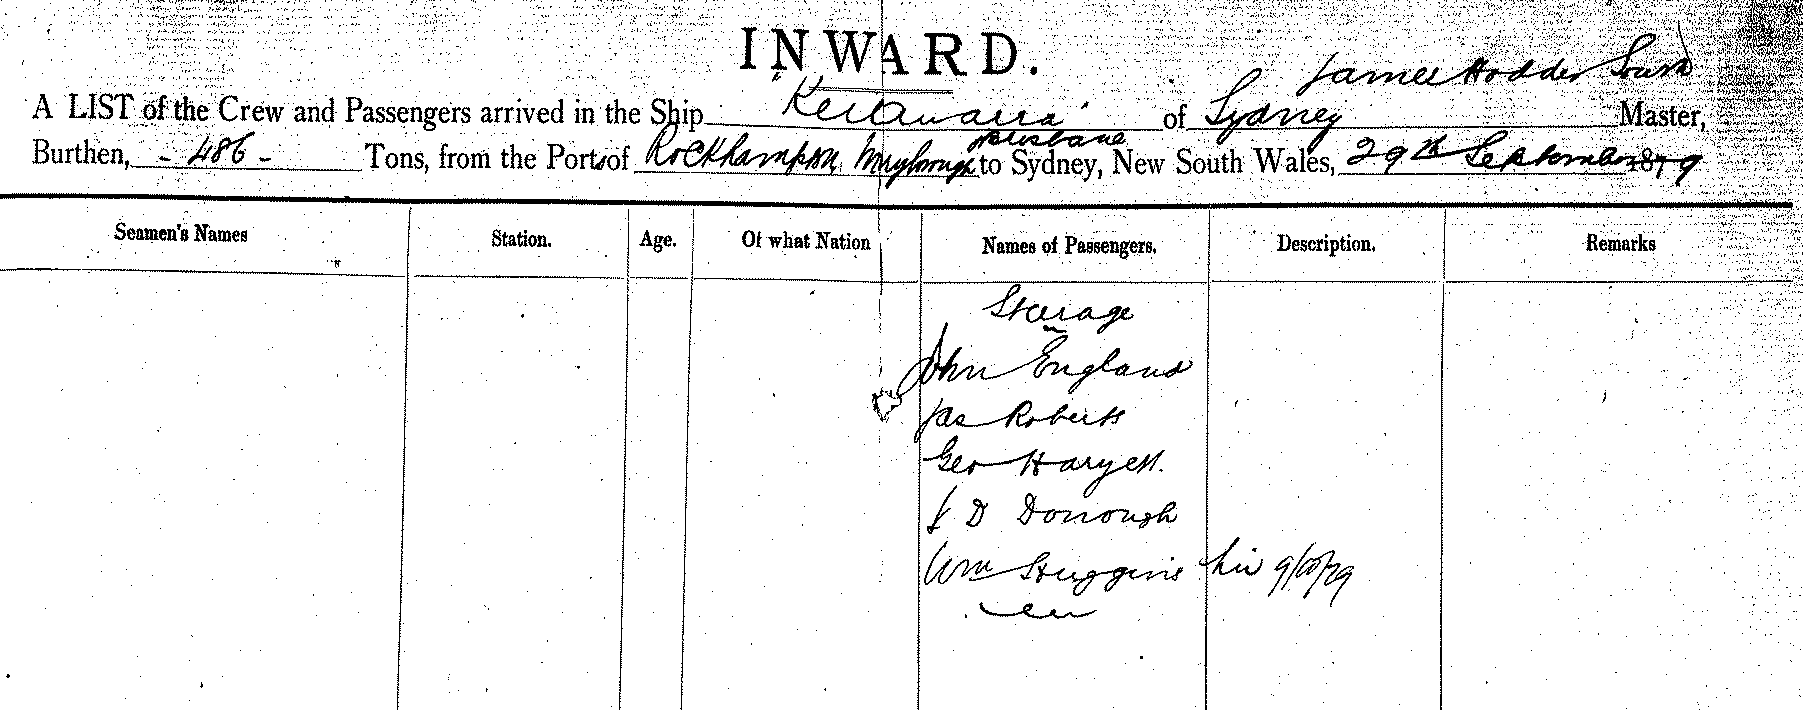 INWARD.
James Hodder South
A LIST of the Crew and Passengers arrived in the Ship "Keilawarra" of Sydney Master,
Brisbane
Burthen, - 486 - Tons, from the Ports of Rockhampton, Maryborough to Sydney, New South Wales, 29th September 1879
Seamen's Names Station. Age. Of what Nation Names of Passengers. Description. Remarks
Steerage
John England
Jas Roberts
Geo
J D Donough
Wm 9/10/79